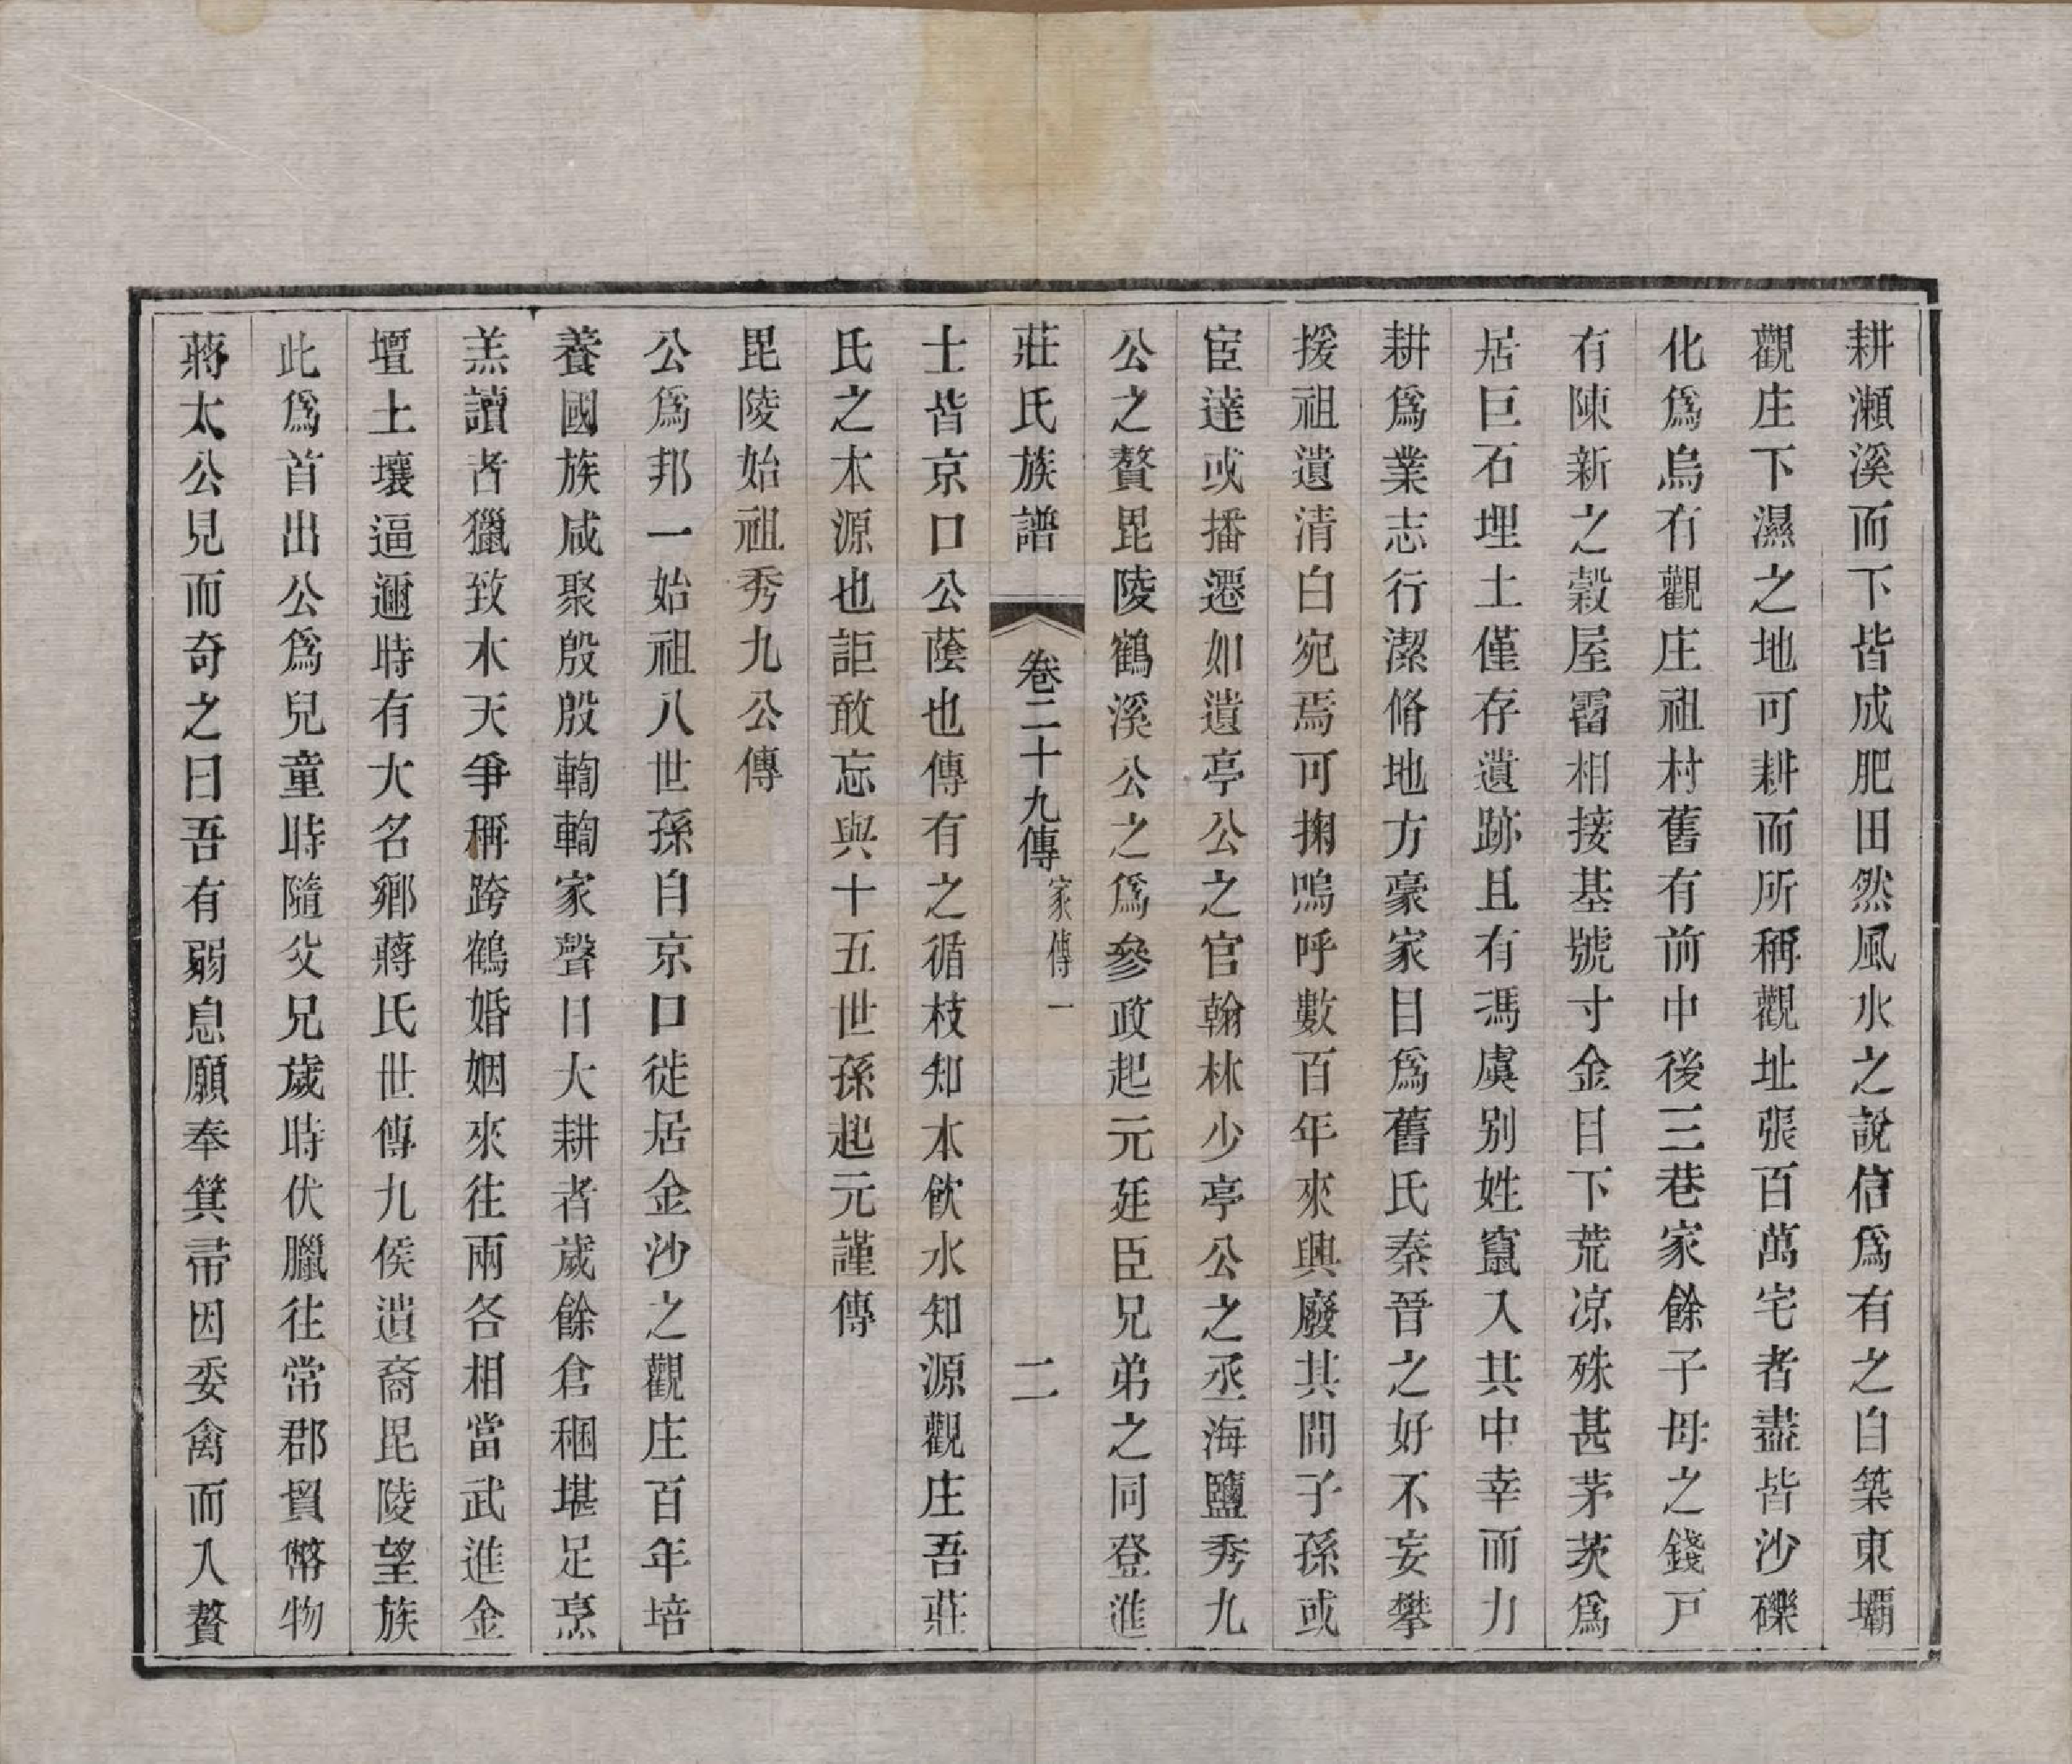 耕瀨溪而下皆成肥田然風水之說信爲有之自築東壩
觀庄下濕之地可耕而所稱觀址張百萬宅者盡皆沙礫
化爲烏有觀庄祖村舊有前中後三巷家餘子母之錢戸
有陳新之穀屋霤相接基號寸金目下荒凉殊甚茅茨爲
居巨石埋土僅存遺跡且有馮虞别姓竄入其中幸而力
耕爲業志行潔脩地方豪家目爲舊氏秦晉之好不妄攀
援祖遺清白宛焉可掬嗚呼數百年來興廢其間子孫或
宦達或播遷如遺亭公之官翰林少亭公之丞海鹽秀九
公之贅毘陵鶴溪公之爲參政起元廷臣兄弟之同登進
莊氏族譜 卷二十九傳 家傳一 二
士皆京口公蔭也傳有之循枝知本飲水知源觀庄吾莊
氏之本源也詎敢忘與十五世孫起元謹傳
毘陵始祖秀九公傳
公爲邦一始祖八世孫自京口徙居金沙之觀庄百年培
養國族咸聚殷殷輷輷家聲日大耕者歲餘倉稛堪足烹
羔讀者獵致木天爭稱跨鶴婚姻來往兩各相當武進金
壇上壤逼邇時有大名鄉蔣氏世傳九侯遺裔毘陵望族
此爲首出公爲兒童時隨父兄歲時伏臘往常郡貿幣物
蔣太公見而奇之曰吾有弱息願奉箕帚因委禽而入贅